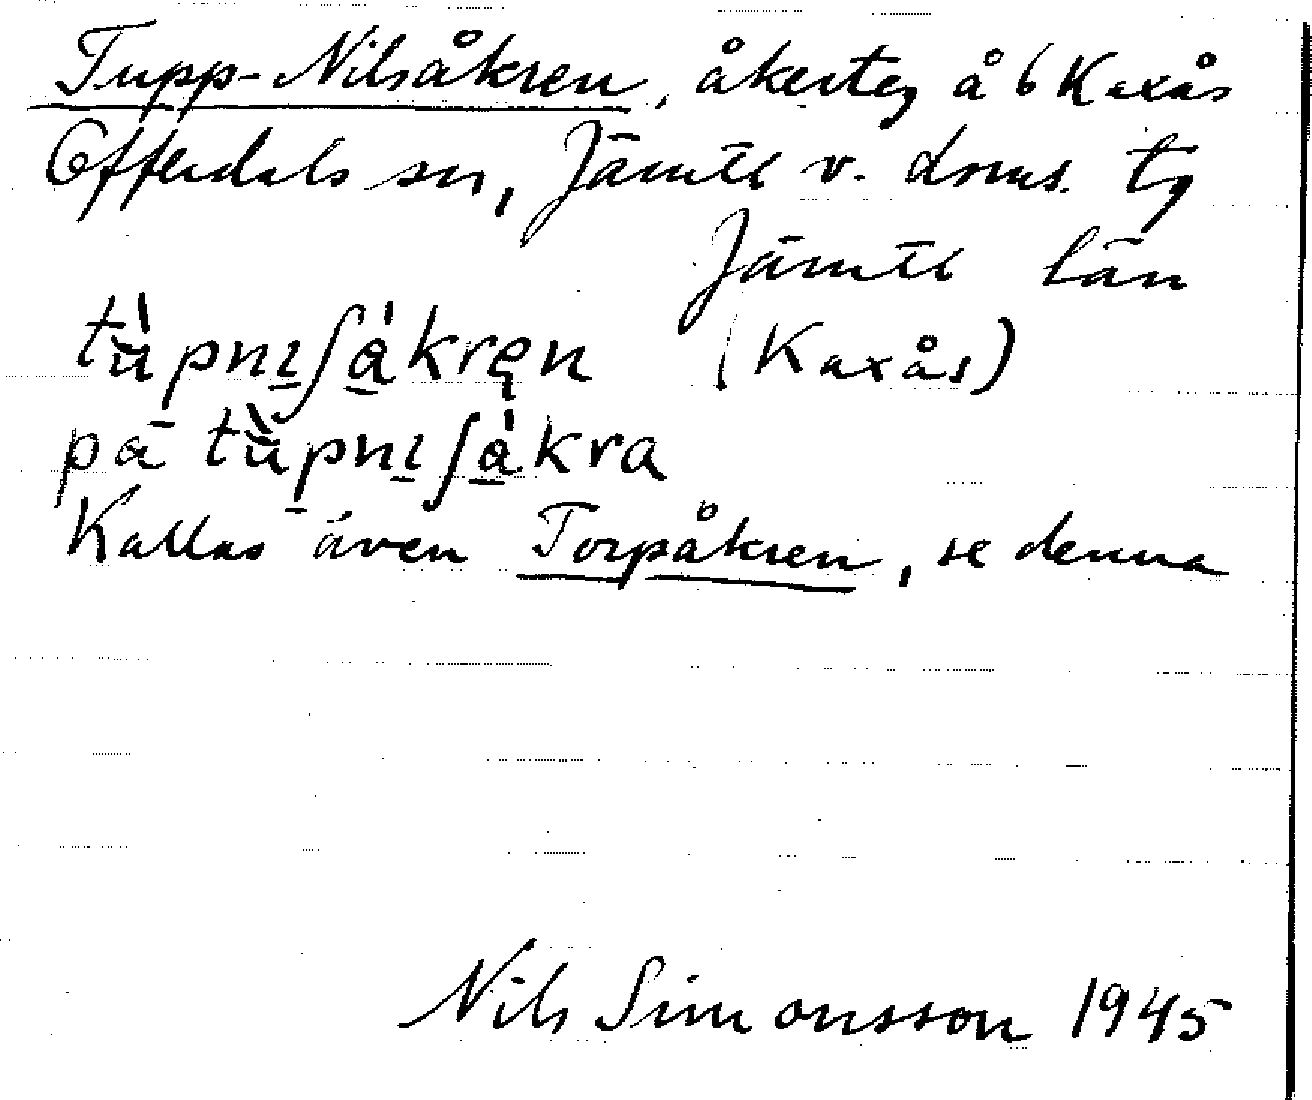 Tupp-Nilsåkren, åkerteg å 6 Kaxås
Offerdals sn, Jämtl v. doms. tg
Jämtl län
tùpnɪʃåkręn (Kaxås)
på tùpnɪʃåkra
Kallas även Torpåkren, se denna
Nils Simonsson 1945